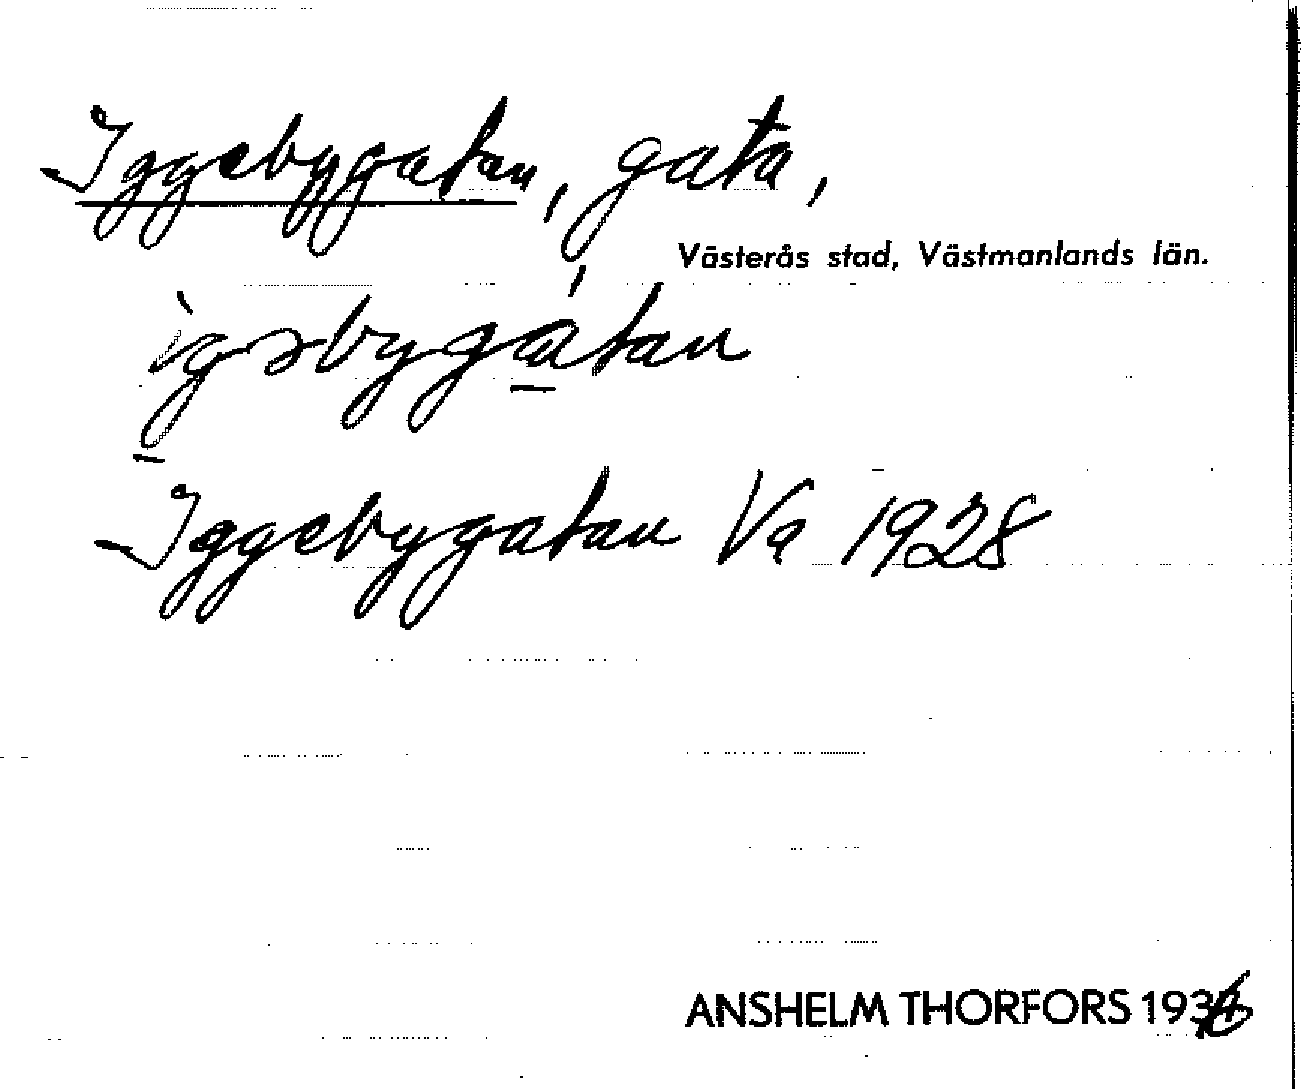 Iggebygatan, gata,
Västerås stad, Västmanlands län.
ìgəbygátan
Iggebygatan Va 1928
ANSHELM THORFORS 1936